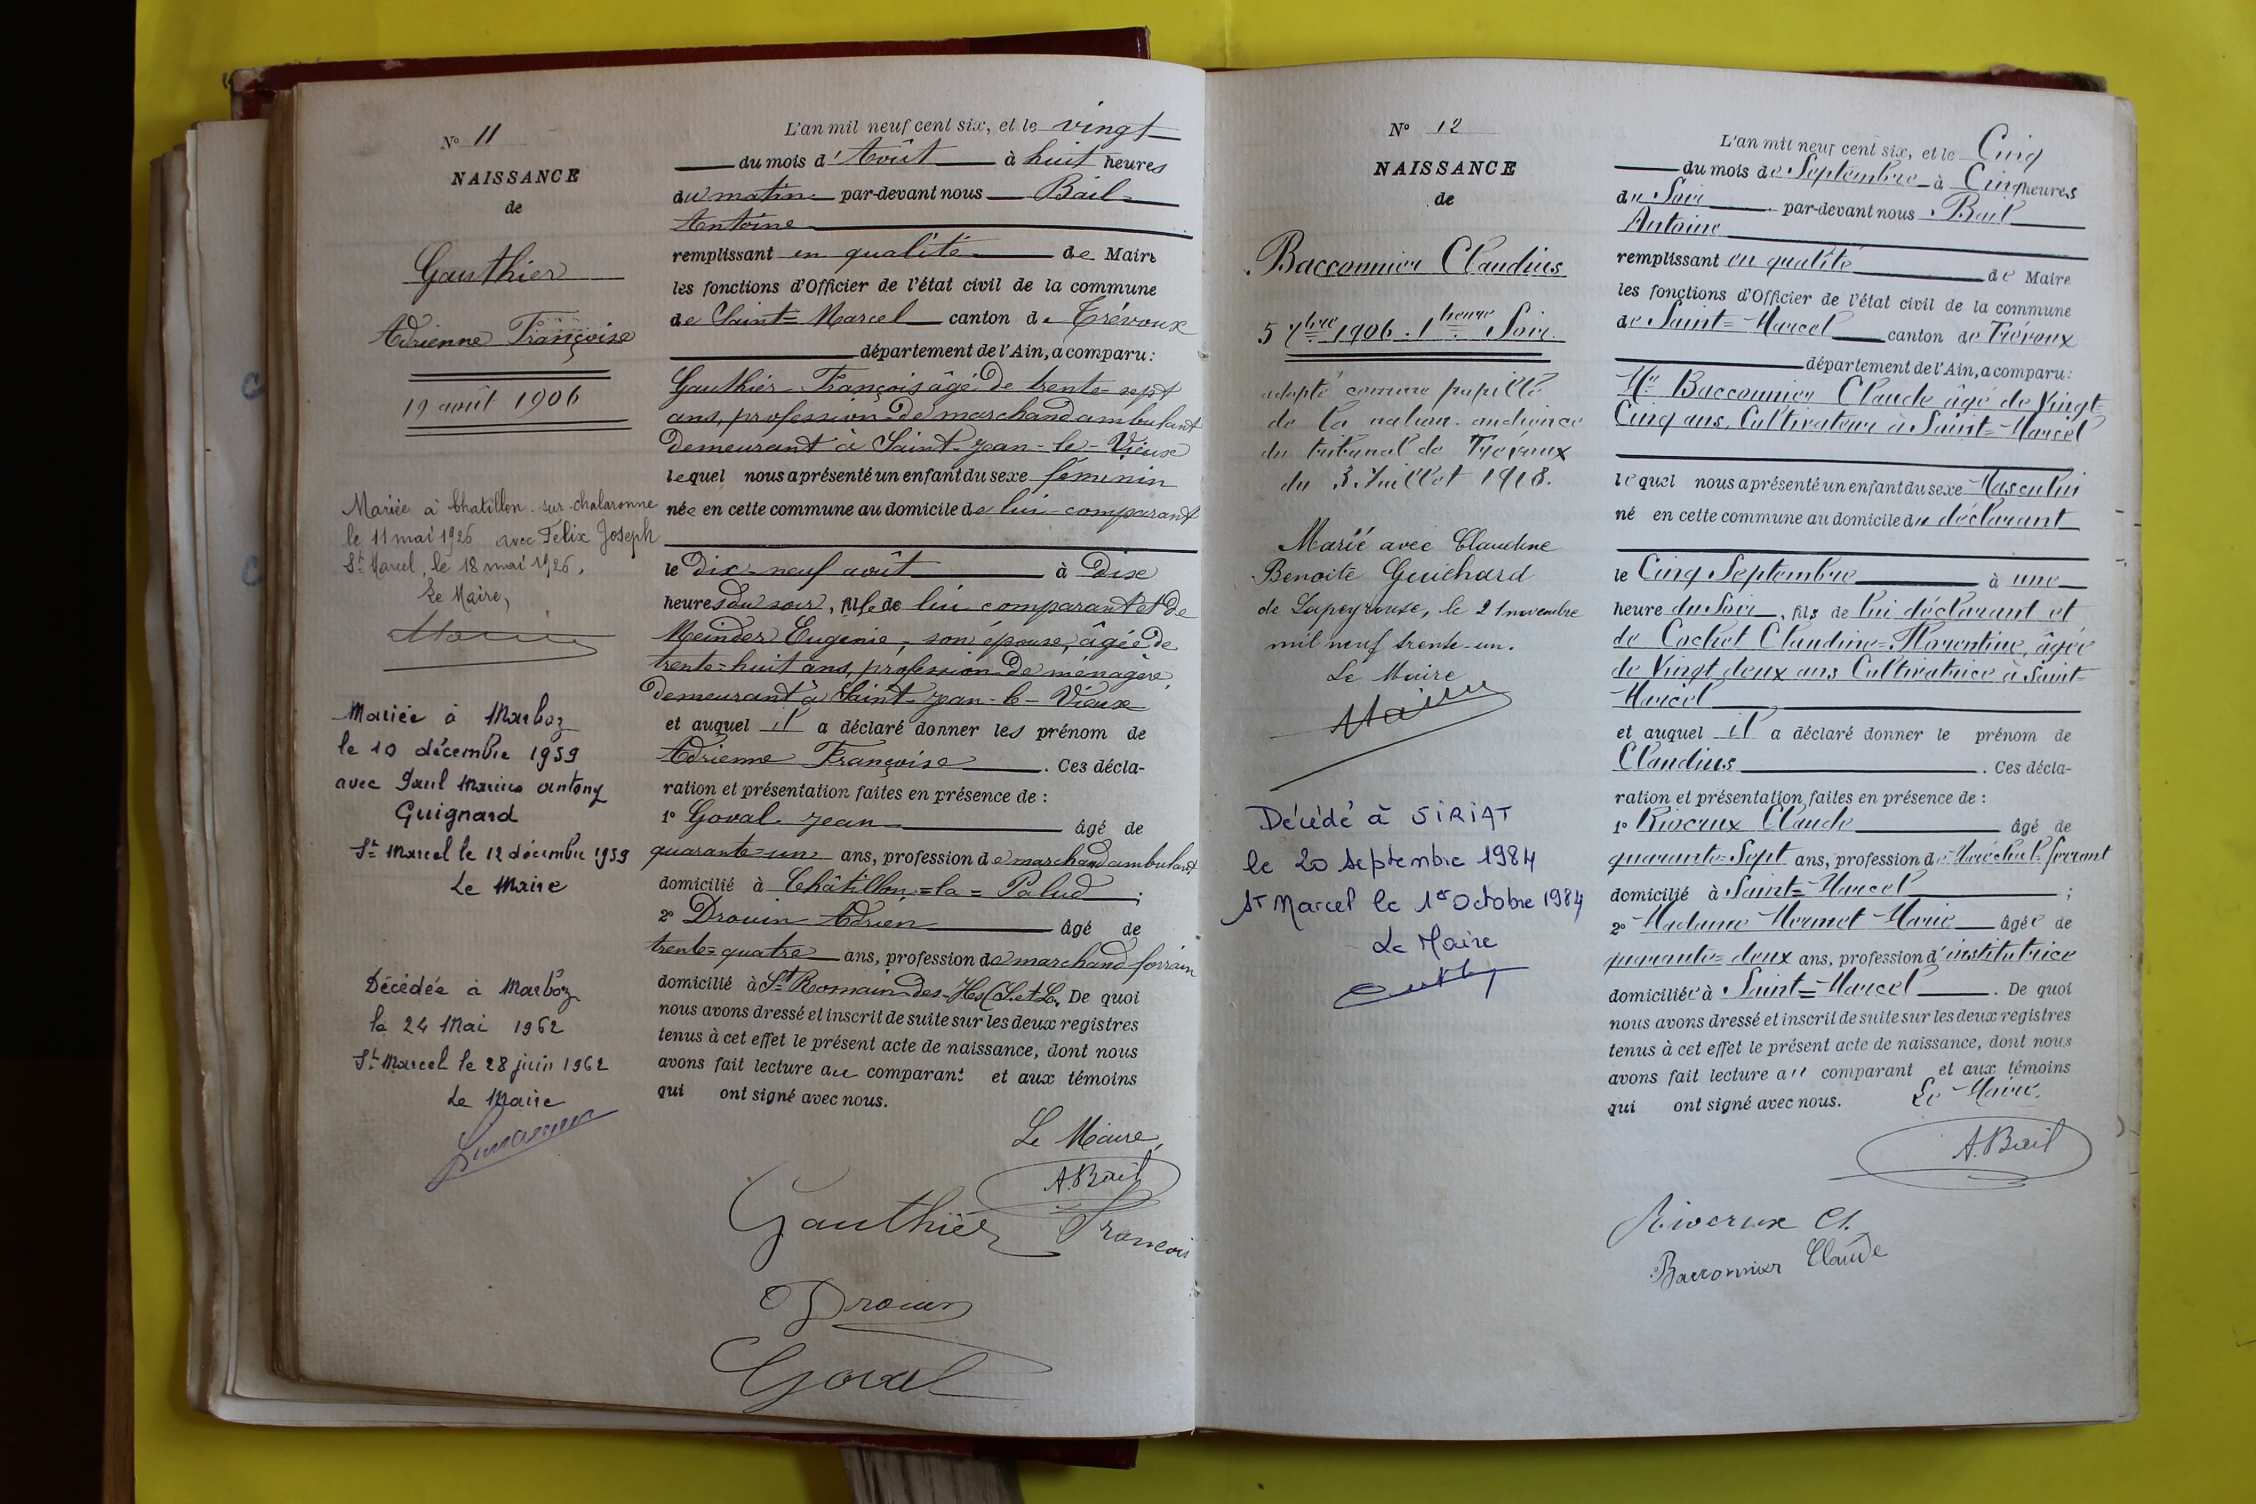 N° 11
NAISSANCE
de
Gauthier
Adrienne Françoise
19 août 1906
Mariée à Chatillon-sur-chalaronne
le 11 mai 1926 avec Félix Joseph
St Marcel, le 18 mai 1926,
Le Maire,
Mariée à Marboz
le 10 décembre 1959
avec Paul Marius Antony
Guignard
St Marcel le 12 décembre 1959
Le Maire
Décédée à Marboz
le 24 Mai 1962
St Marcel le 28 juin 1962
Le Maire
L'an mil neuf cent six, et le vingt
du mois d'Août à huit heures
du matin par-devant nous Bail
Antoine
remplissant en qualité de Maire
les fonctions d'Officier de l'état civil de la commune
de Saint=Marcel canton de Trévoux
département de l'Ain, a comparu :
Gauthier François âgé de trente-sept
ans, profession de marchand ambulant
demeurant à Saint-Jean-le-Vieux
lequel nous a présenté un enfant du sexe féminin
née en cette commune au domicile de lui comparant
le dix-neuf août à Dix
heures du soir, fille de lui comparant et de
Meinder Eugénie, son épouse, âgée de
trente=huit ans, profession de ménagère,
demeurant à Saint-Jean-le-Vieux
et auquel il a déclaré donner les prénom de
Adrienne Françoise. Ces décla-
ration et présentation faites en présence de :
1° Goval Jean âgé de
quarante=un ans, profession de marchand ambulant
domicilié à Châtillon=la=Palud ;
2° Drouin Adrien âgé de
trente=quatre ans, profession de marchand forain
domicilié à St Romain-des-Iles (S. et L. De quoi
nous avons dressé et inscrit de suite sur les deux registres
tenus à cet effet le présent acte de naissance, dont nous
avons fait lecture au comparant et aux témoins
qui ont signé avec nous.
Le Maire,
A. Bail
Gauthier François
Drouin
Goval
N° 12
NAISSANCE
de
Bacconnier Claudius
5 7bre 1906. 1 heure Soir.
adopté comme pupille
de la nation. audience
du tribunal de Trévoux
du 3 Juillet 1918.
Marié avec Claudine
Benoite Guichard
de Lapeyrouse, le 21 novembre
mil neuf trente-un.
Le Maire
Décédé à SIRIAT
le 20 septembre 1984
St Marcel le 1er Octobre 1984
Le Maire
L'an mil neuf cent six, et le Cinq
du mois de Septembre à Cinq heures
du Soir par-devant nous Bail
Antoine
remplissant en qualité de Maire
les fonctions d'Officier de l'état civil de la commune
de Saint=Marcel canton de Trévoux
département de l'Ain, a comparu :
Mr Bacconnier Claude âgé de Vingt=
Cinq ans, Cultivateur à Saint=Marcel
lequel nous a présenté un enfant du sexe Masculin
né en cette commune au domicile du déclarant
le Cinq Septembre à une
heure du Soir, fils de lui déclarant et
de Cochet Claudine=Florentine, âgée
de Vingt deux ans Cultivatrice à Saint=
Marcel
et auquel il a déclaré donner le prénom de
Claudius. Ces décla-
ration et présentation faites en présence de :
1° Riverux Claude âgé de
quarante=Sept ans, profession de Maréchal-ferrant
domicilié à Saint=Marcel ;
2° Madame Mermet Marie âgée de
quarante=deux ans, profession d'institutrice
domiciliée à Saint=Marcel. De quoi
nous avons dressé et inscrit de suite sur les deux registres
tenus à cet effet le présent acte de naissance, dont nous
avons fait lecture au comparant et aux témoins
qui ont signé avec nous. Le Maire.
A. Bail
Riverux Cl.
Bacconnier Claude